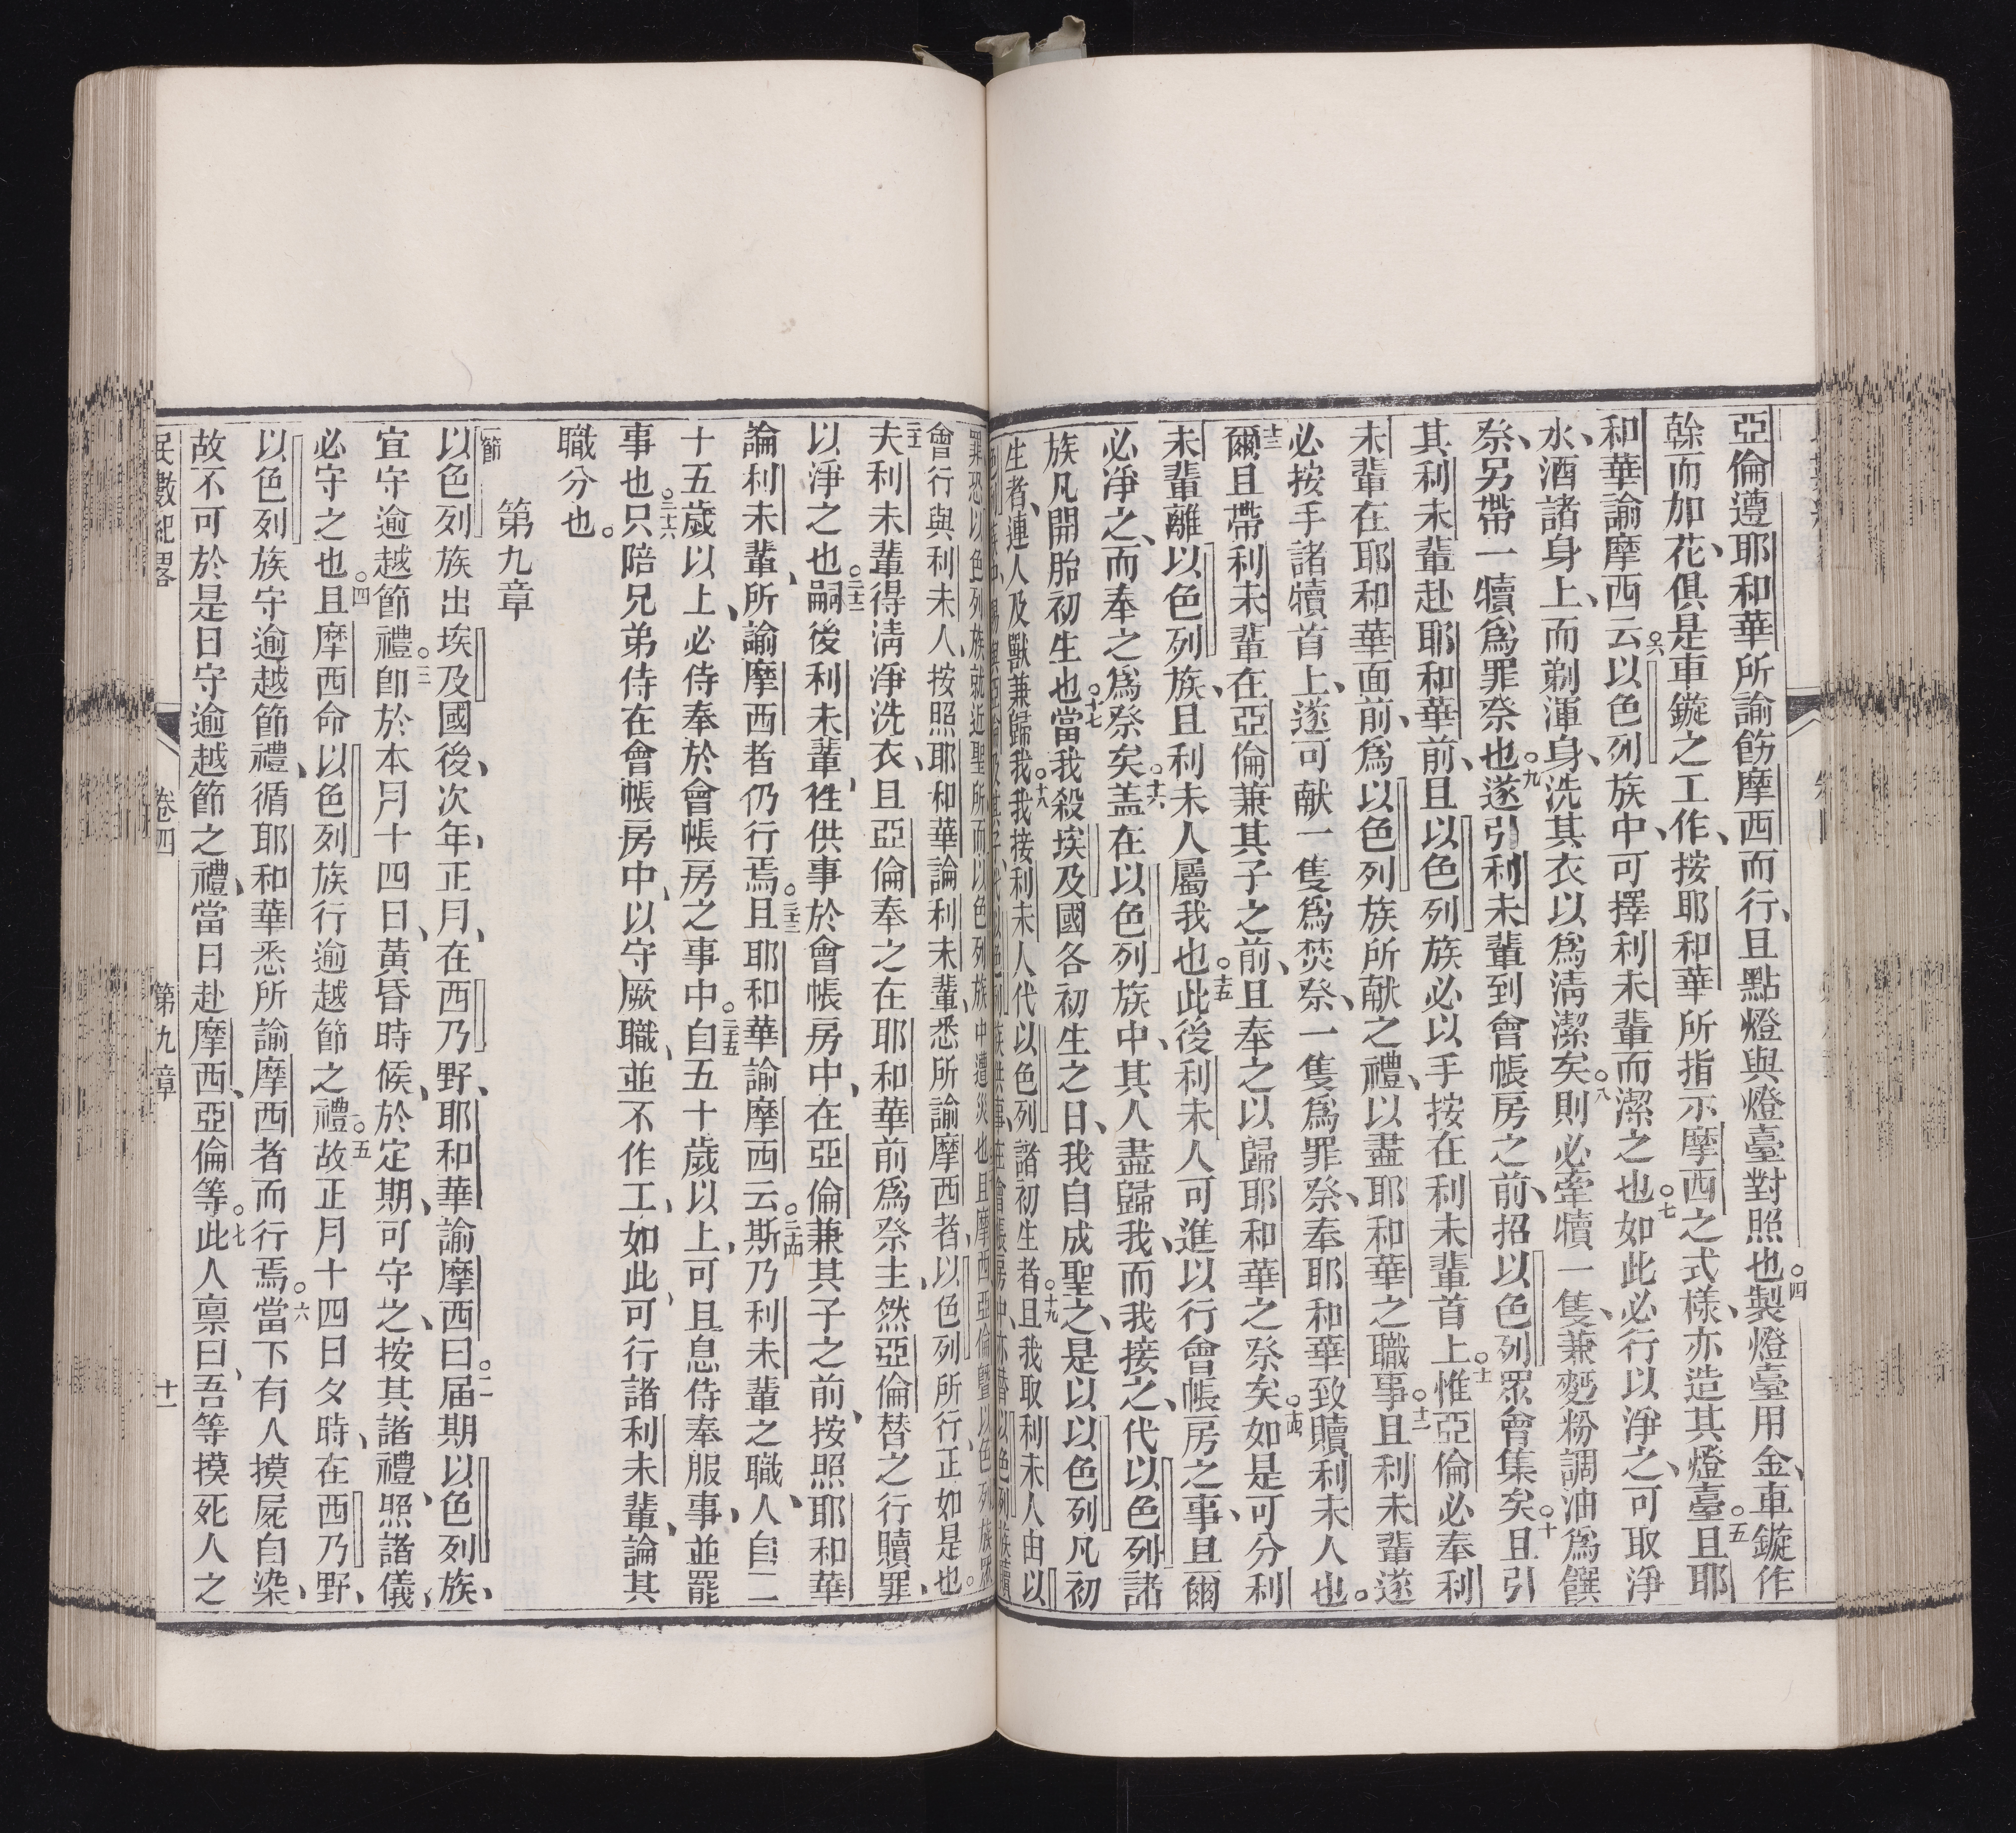 亞倫遵耶和華所諭飭摩西而行、且點燈與燈臺對照也。四製燈臺用金、車鏇作
榦而加花、俱是車鏇之工作、按耶和華所指示摩西之式樣、亦造其燈臺。五且耶
和華諭摩西云。六以色列族中、可擇利未輩而潔之也。七如此必行以淨之、可取淨
水、洒諸身上、而剃渾身、洗其衣以爲淸潔矣。八則必牽犢一隻、兼麪粉調油爲饌
祭、另帶一犢爲罪祭也。九遂引利未輩到會帳房之前、招以色列眾會集矣。十且引
其利未輩赴耶和華前、且以色列族必以手按在利未輩首上。十一惟亞倫必奉利
未輩在耶和華面前、爲以色列族所献之禮、以盡耶和華之職事。十二且利未輩遂
必按手諸犢首上、遂可献一隻爲焚祭、一隻爲罪祭、奉耶和華致贖利未人也。
十三爾且帶利未輩在亞倫兼其子之前、且奉之以歸耶和華之祭矣。十四如是可分利
未輩離以色列族、且利未人屬我也。十五此後利未人可進以行會帳房之事、且爾
必淨之、而奉之爲祭矣。十六盖在以色列族中、其人盡歸我、而我接之、代以色列諸
族凡開胎初生也。十七當我殺埃及國各初生之日、我自成聖之、是以以色列凡初
生者、連人及獸兼歸我。十八我接利未人代以色列諸初生者。十九且我取利未人由以
罪恐以色列族就近聖所而以色列族中遭災也且摩西亞倫曁以色列族
會行與利未人、按照耶和華諭利未輩、悉所諭摩西者、以色列所行、正如是也。
夫利未輩得淸淨洗衣、且亞倫奉之在耶和華前爲祭、主、然亞倫替之行贖罪、
以淨之也。二十二嗣後利未輩、徃供事於會帳房中、在亞倫兼其子之前、按照耶和華
論利未輩、所諭摩西者仍行焉。二十三且耶和華諭摩西云。二十四斯乃利未輩之職、人自二
十五歲以上、必侍奉於會帳房之事中。二十五自五十歲以上、可且息侍奉服事、並罷
事也。二十六只陪兄弟侍在會帳房中、以守厥職、並不作工、如此、可行諸利未輩、論其
職分也。
第九章
一節以色列族出埃及國後、次年、正月、在西乃野、耶和華諭摩西曰。二届期以色列族、
宜守逾越節禮。三卽於本月十四日、黃昏時候、於定期、可守之、按其諸禮、照諸儀、
必守之也。四且摩西命以色列族行逾越節之禮。五故正月十四日夕時、在西乃野、
以色列族守逾越節禮、循耶和華悉所諭摩西者而行焉。六當下有人摸屍自染、
故不可於是日守逾越節之禮、當日赴摩西、亞倫等。七此人禀曰、吾等摸死人之
民數紀畧 卷四 第九章 十一